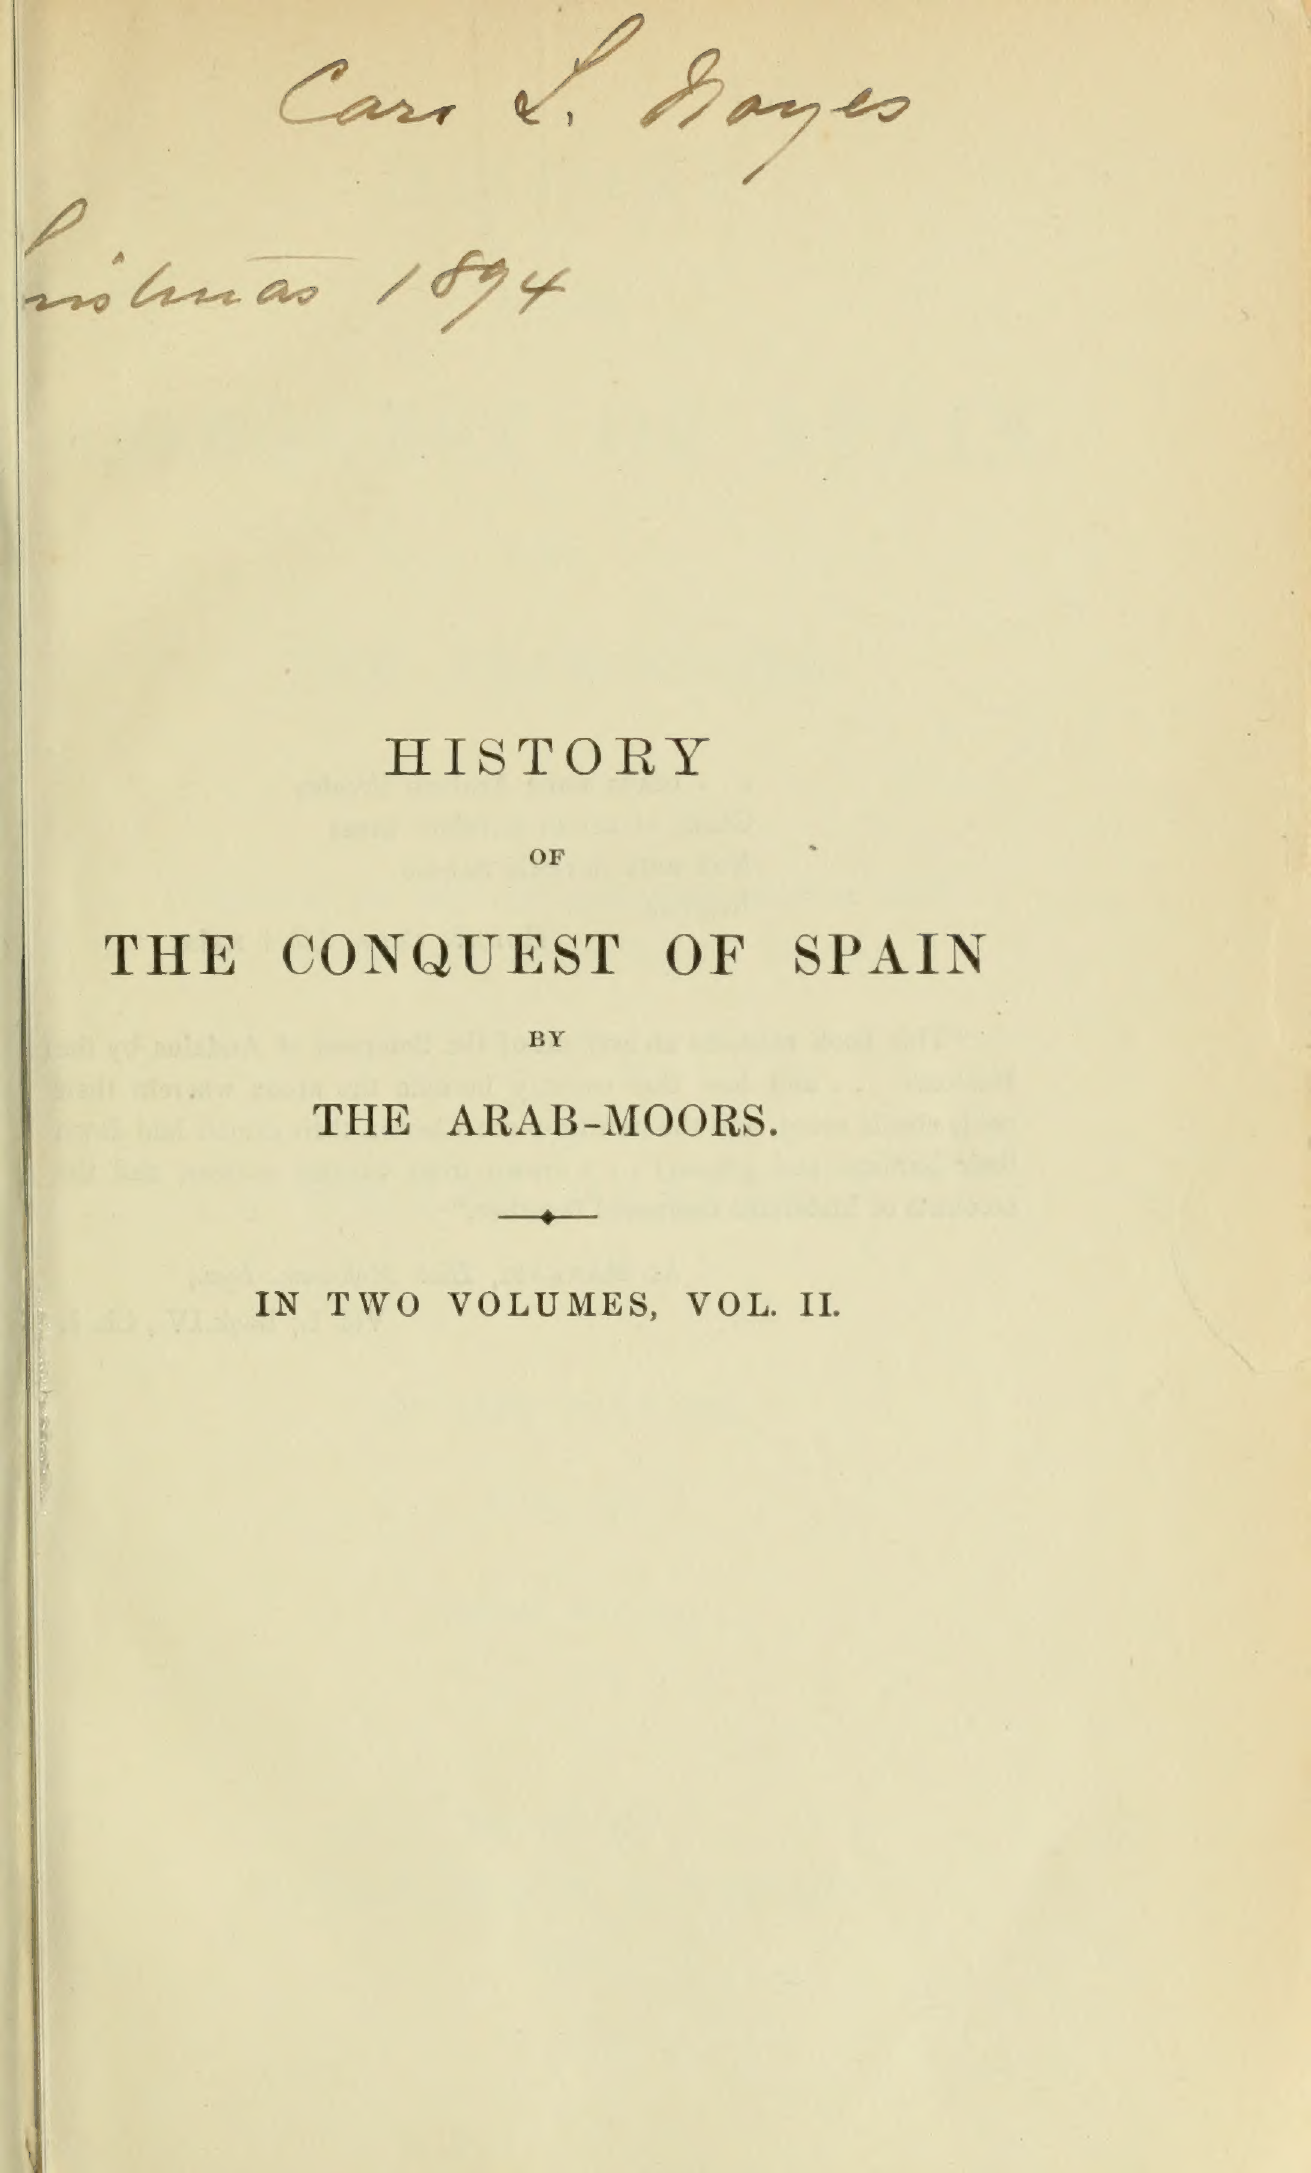 Carr L. Noyes
ristmas 1894
HISTORY
OF
THE CONQUEST OF SPAIN
BY
THE ARAB-MOORS.
IN TWO VOLUMES, VOL. II.